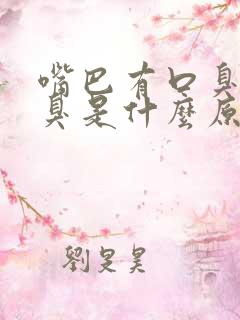 嘴巴有口臭
臭是什麼原
劉旻昊